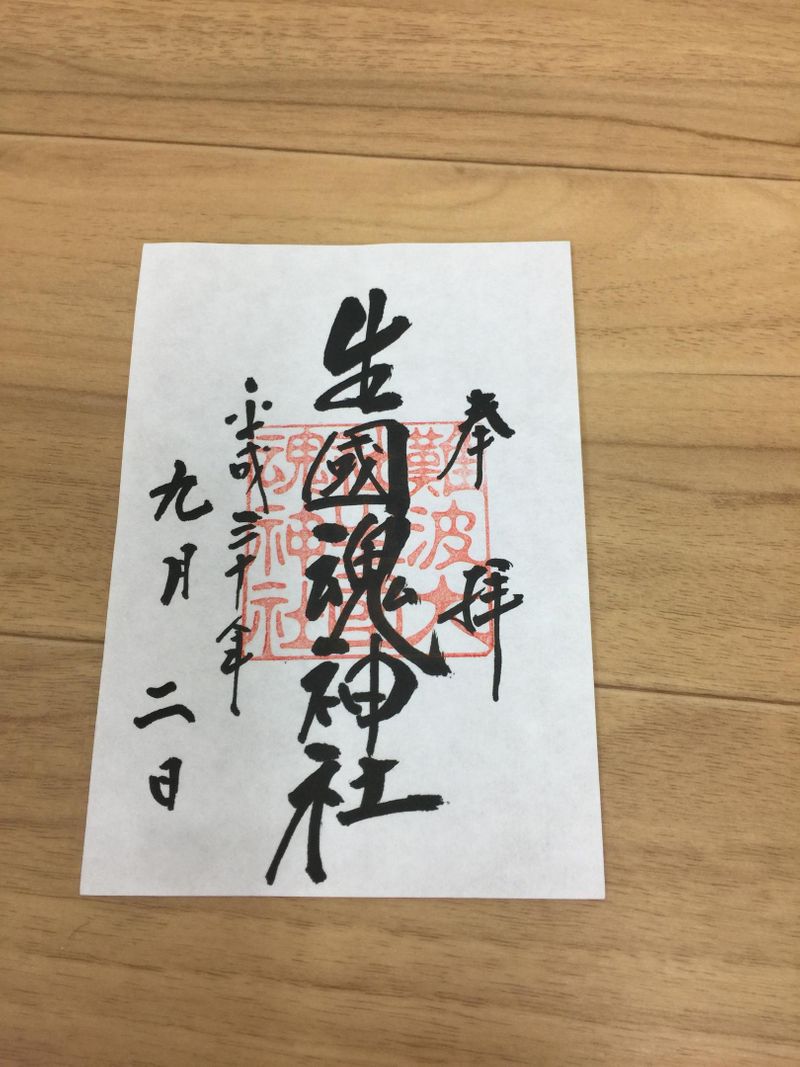 奉拝
生國魂神社
平成三十年
九月二日
難波大
魂神社